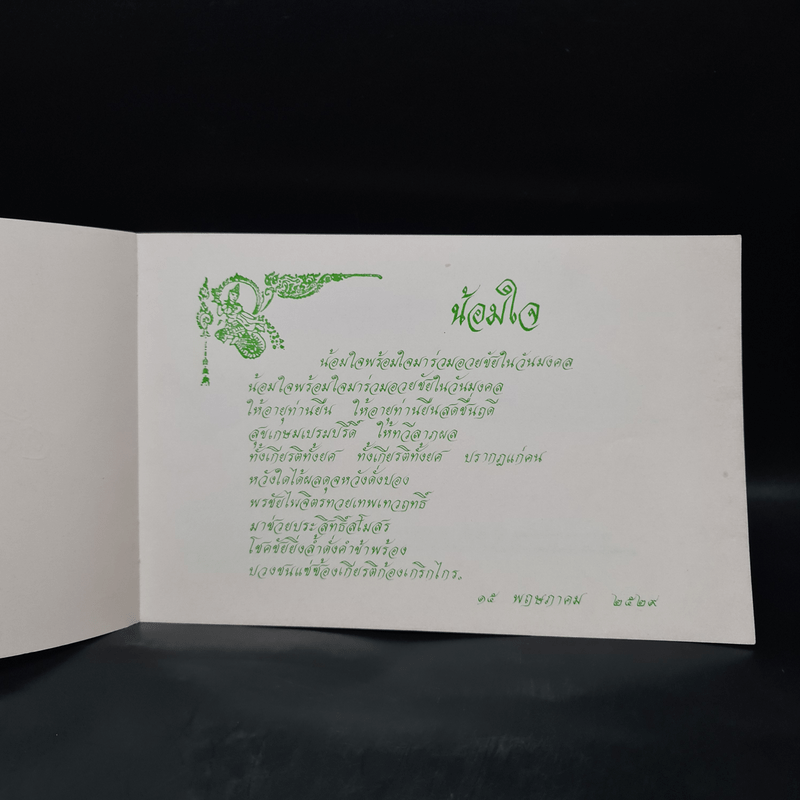 น้อมใจ
น้อมใจพร้อมใจมาร่วมอวยชัยในวันมงคล
น้อมใจพร้อมใจมาร่วมอวยชัยในวันมงคล
ให้อายุท่านยืน ให้อายุท่านยืนสดชื่นฤดี
สุขเกษมเปรมปรีดิ์ ให้ทวีลาภผล
ทั้งเกียรติทั้งยศ ทั้งเกียรติทั้งยศ ปรากฏแก่ตน
หวังใดได้ผลดุจหวังดั่งปอง
พรชัยไพจิตรทวยเทพเทวฤทธิ์
มาช่วยประสิทธิ์สโมสร
โชคชัยยิ่งล้ำดั่งคำข้าพร้อง
ปวงชนแซ่ซ้องเกียรติก้องเกริกไกร.
๑๕ พฤษภาคม ๒๕๒๙